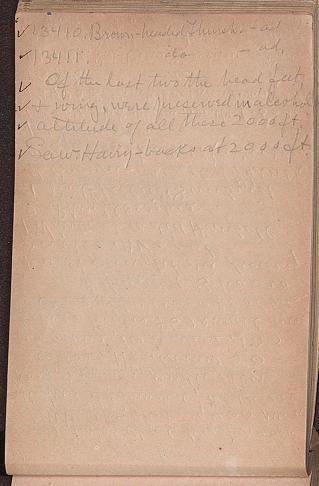 ✓ 13410. Brown-headed Thrush - ad
✓ 13411. do - ad.
✓ Of the last two the head feet,
✓ & wing, were preserved in alcohol
✓ altitude of all these 2000 ft.
✓ Saw Hairy-backs at 2000 ft.